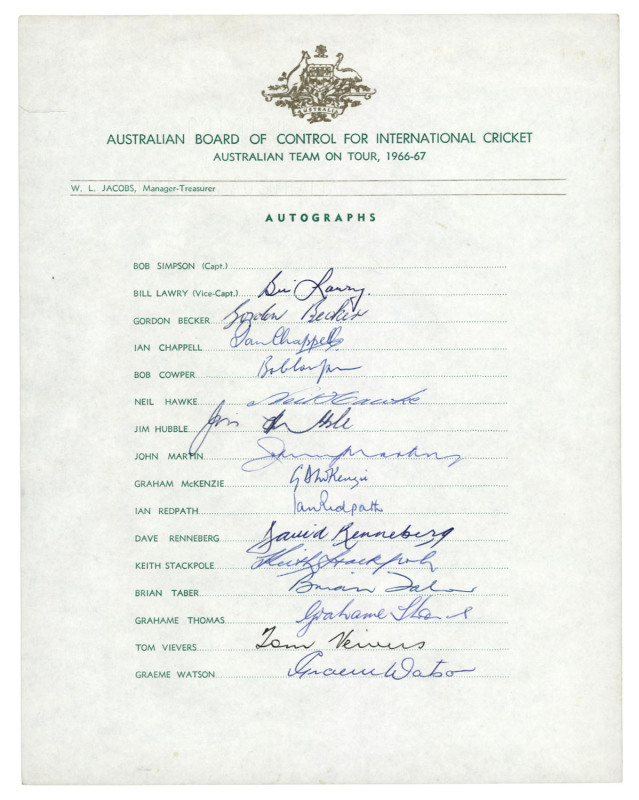 AUSTRALIA
AUSTRALIAN BOARD OF CONTROL FOR INTERNATIONAL CRICKET
AUSTRALIAN TEAM ON TOUR, 1966-67
W. L. JACOBS, Manager-Treasurer
AUTOGRAPHS
BOB SIMPSON (Capt.)
BILL LAWRY (Vice-Capt.) Bill Lawry.
GORDON BECKER Gordon Becker
IAN CHAPPELL Ian Chappell
BOB COWPER Bob Cowper
NEIL HAWKE Neil Hawke
JIM HUBBLE Jim Hubble
JOHN MARTIN John Martin
GRAHAM McKENZIE G D McKenzie
IAN REDPATH Ian Redpath
DAVE RENNEBERG David Renneberg
KEITH STACKPOLE Keith Stackpole
BRIAN TABER Brian Taber
GRAHAME THOMAS Grahame Thomas
TOM VIEVERS Tom Veivers
GRAEME WATSON Graeme Watson